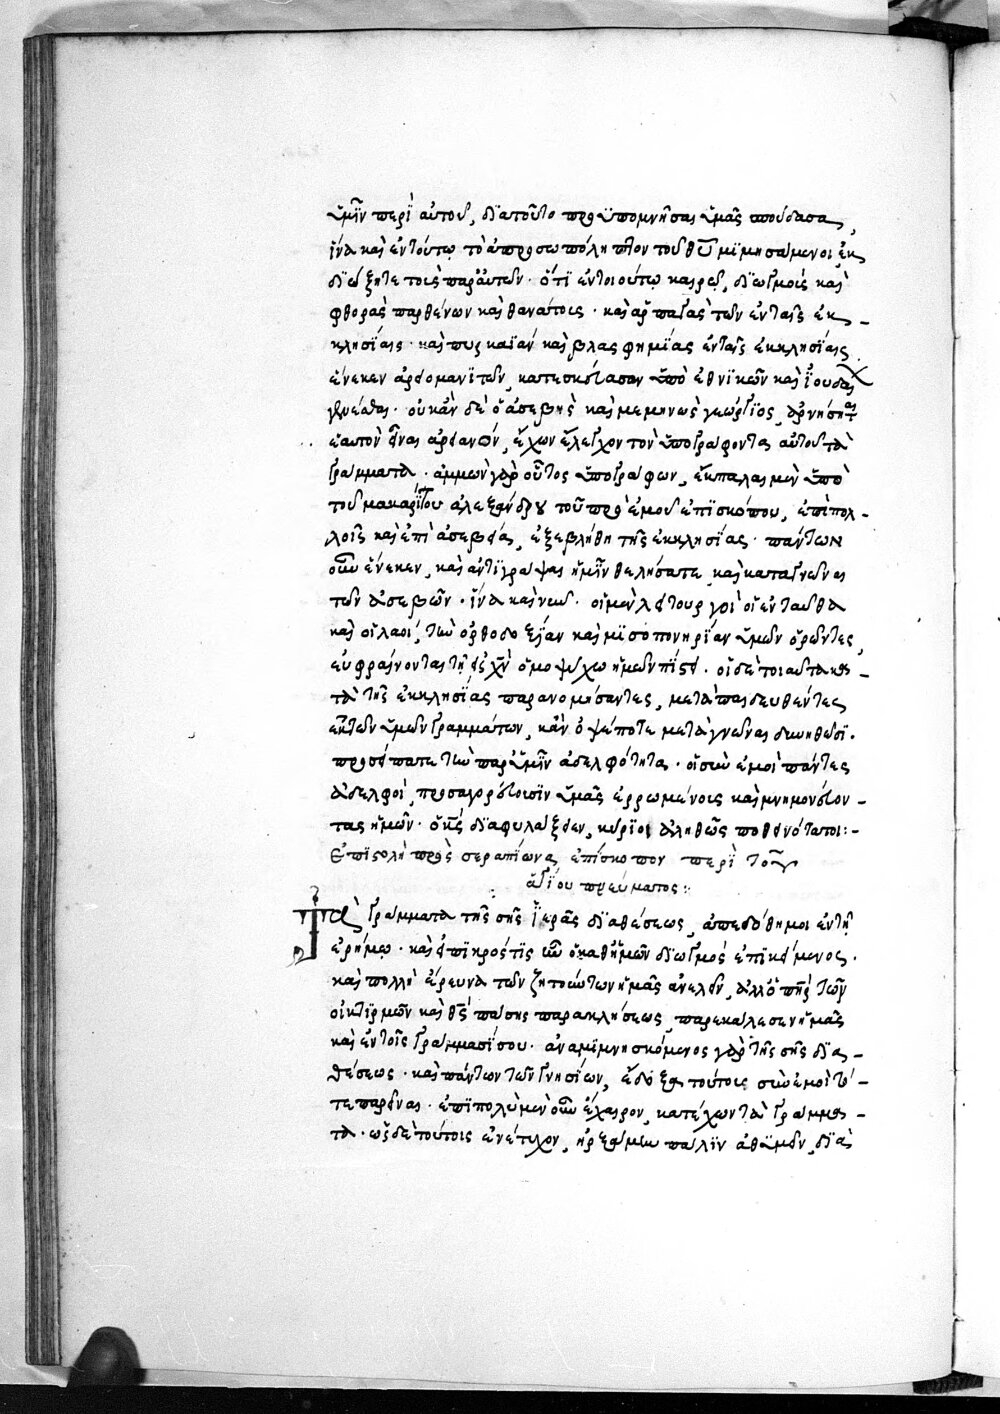 ὑμῖν περὶ αὐτοῦ, διατοῦτο προϋπομνῆσαι ὑμᾶς ἐσπούδασα,
ἵνα καὶ ἐντούτω τὸ ἀπροσωπόληπτον τοῦ θῦ μιμησάμενοι, ἐκ
διώξητε τοὺς παρ' αὐτῶν. ὅτι ἐν τοιούτω καιρῶ, διωγμοὶς καὶ
φθορὰς παρθένων καὶ θανάτοις. καὶ ἁρπαγὰς τῶν ἐνταῖς ἐκ_
κλησίαις. καὶ πυρκαϊὰν καὶ βλασφημίας ἐνταῖς ἐκκλησίαις
ἕνεκεν ἀρειομανιτῶν, κατεσκεύασαν ὑπὸ ἐθνικῶν καὶ ἰουδαί
γενέσθαι. οὐκ ἂν δὲ ὁ ἀσεβὴς καὶ μεμηνὼς γεώργιος, ἀρνήσηται
ἑαυτὸν εἶναι ἀρειανόν, ἔχων ἔλεγχον τὸν ὑπογράφοντα αὐτοῦ τὰ
γράμματα. ἄμμων γὰρ οὗτος ὑπογράφων, ἔκπαλαι μὲν ὑπὸ
τοῦ μακαρίτου ἀλεξάνδρου τοῦ πρὸ ἐμοῦ ἐπισκόπου, ἐπὶ πολ_
λοῖς καὶ ἐπὶ ἀσεβεία, ἐξεβλήθη τῆς ἐκκλησίας. πάντων
οὖν ἕνεκεν, καὶ ἀντιγράψαι ἡμῖν θελήσατε, καὶ καταγνῶναι
τῶν ἀσεβῶν. ἵνα καὶ νῦν. οἱ μὲν λειτουργοὶ οἱ ἐνταῦθα
καὶ οἱ λαοί, τὴν ὀρθοδοξίαν καὶ μισοπονηρίαν ὑμῶν ὁρῶντες,
εὐφραίνονται τῆ ἐν χῶ ὁμοψύχω ἡμῶν πίστει. οἱ δὲ τοιαῦτα κα_
τὰ τῆς ἐκκλησίας παρανομήσαντες, μεταπαιδευθέντες
ἐκ τῶν ὑμῶν γραμμάτων, κἂν ὀψέποτε μεταγνῶναι δυνηθῶσι.
προσείπατε τὴν παρ' ὑμῖν ἀδελφότητα. οἱ σὺν ἐμοὶ πάντες
ἀδελφοί, προσαγορεύουσιν ὑμᾶς ἐρρωμένοις καὶ μνημονεύον_
τας ἡμῶν. ὁ κς διαφυλάξειεν, κύριοι ἀληθῶς ποθεινότατοι:_
Ἐπιστολὴ πρὸς σεραπίωνα ἐπίσκοπον περὶ τοῦ
ἁγίου πνεύματος:
Τὰ γράμματα τῆς σῆς ἱερᾶς διαθέσεως, ἀπεδόθη μοι ἐν τῆ
ἐρήμω. καὶ εἰ πικρός τις ἦν ὁ καθ' ἡμῶν διωγμὸς ἐπικείμενος.
καὶ πολλὴ ἔρευνα τῶν ζητούντων ἡμᾶς ἀνελεῖν, ἀλλ' ὁ πὴρ τῶν
οἰκτιρμῶν καὶ θς πάσης παρακλήσεως, παρεκάλεσεν ἡμᾶς
καὶ ἐν τοῖς γράμμασί σου. ἀναμιμνησκόμενος γὰρ τῆς σῆς δια_
θέσεως. καὶ πάντων τῶν γνησίων, ἔδοξα τούτοις σὺν ἐμοὶ τό_
τε παρεῖναι. ἐπὶ πολὺ μὲν οὖν ἔχαιρον, κατέχων τὰ γράμμα_
τα. ὡς δὲ τούτοις ἐνέτυχον, ἠρξάμην πάλιν ἀθυμεῖν, διὰ